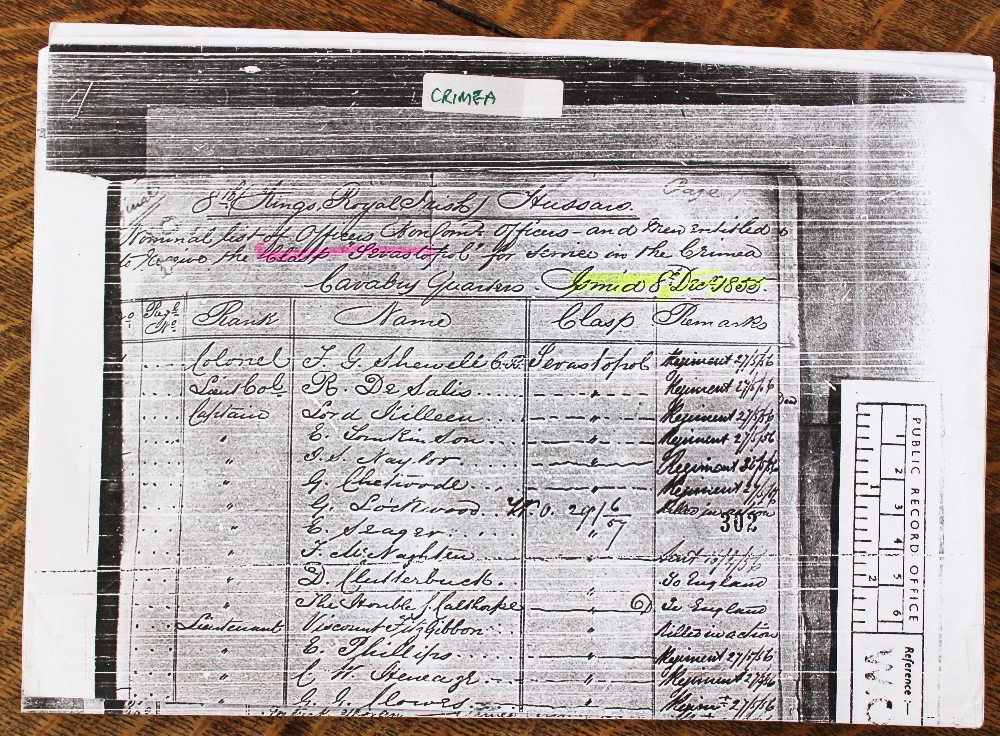 CRIMEA
Page
8th Kings Royal Irish Hussars
Nominal list of Officers Non Com: Officers - and Men entitled
to Receive the Clasp "Sevastopol" for Service in the Crimea
Cavalry Quarters Ismid 8th Decr 1855
Page No. Rank Name Clasp Remarks
Colonel F. G. Shewell C.B. Sevastopol Regiment 27/5/56
Lieut Col R. De Salis " Regiment 27/5/56
Captain Lord Killeen " Regiment 27/5/56
" E. Tomkinson " Regiment 27/5/56
" J. S. Naylor " Regiment
" G. Chetwode " Regiment
" G. Lockwood W.O. 29/6/57 killed in action
" E. Seager 302
" F. McNaghten " Sent
" D. Clutterbuck To England
" The Honble J. Calthorpe " To England
Lieutenant Viscount FitzGibbon " killed in action
" E. Phillips " Regiment 27/5/56
" C. W. Heneage " Regiment
" G. G. Clowes " Regimt 27/5/56
PUBLIC RECORD OFFICE
1 2 3 4 5 6
1 2
Reference:-